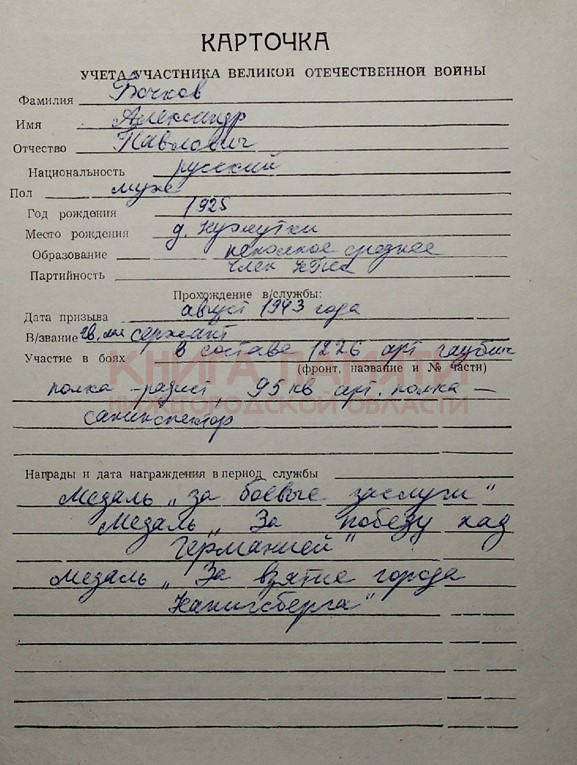 КАРТОЧКА
УЧЕТА УЧАСТНИКА ВЕЛИКОЙ ОТЕЧЕСТВЕННОЙ ВОЙНЫ
Фамилия Бочков
Имя Александр
Отчество Павлович
Национальность русский
Пол муж
Год рождения 1925
Место рождения д.
Образование неполное среднее
Партийность член КПСС
Прохождение в/службы:
Дата призыва август 1943 года
В/звание гв. мл сержант
Участие в боях в составе 1226 арт гаубич
(фронт, название и № части)
КНИГА ПАМЯТИ
полка – радист 95 кв арт. полка –
НИЖЕГОРОДСКОЙ ОБЛАСТИ
санинспектор
Награды и дата награждения в период службы
Медаль „за боевые заслуги"
Медаль „За победу над
Германией"
Медаль „За взятие города
Кенигсберга"